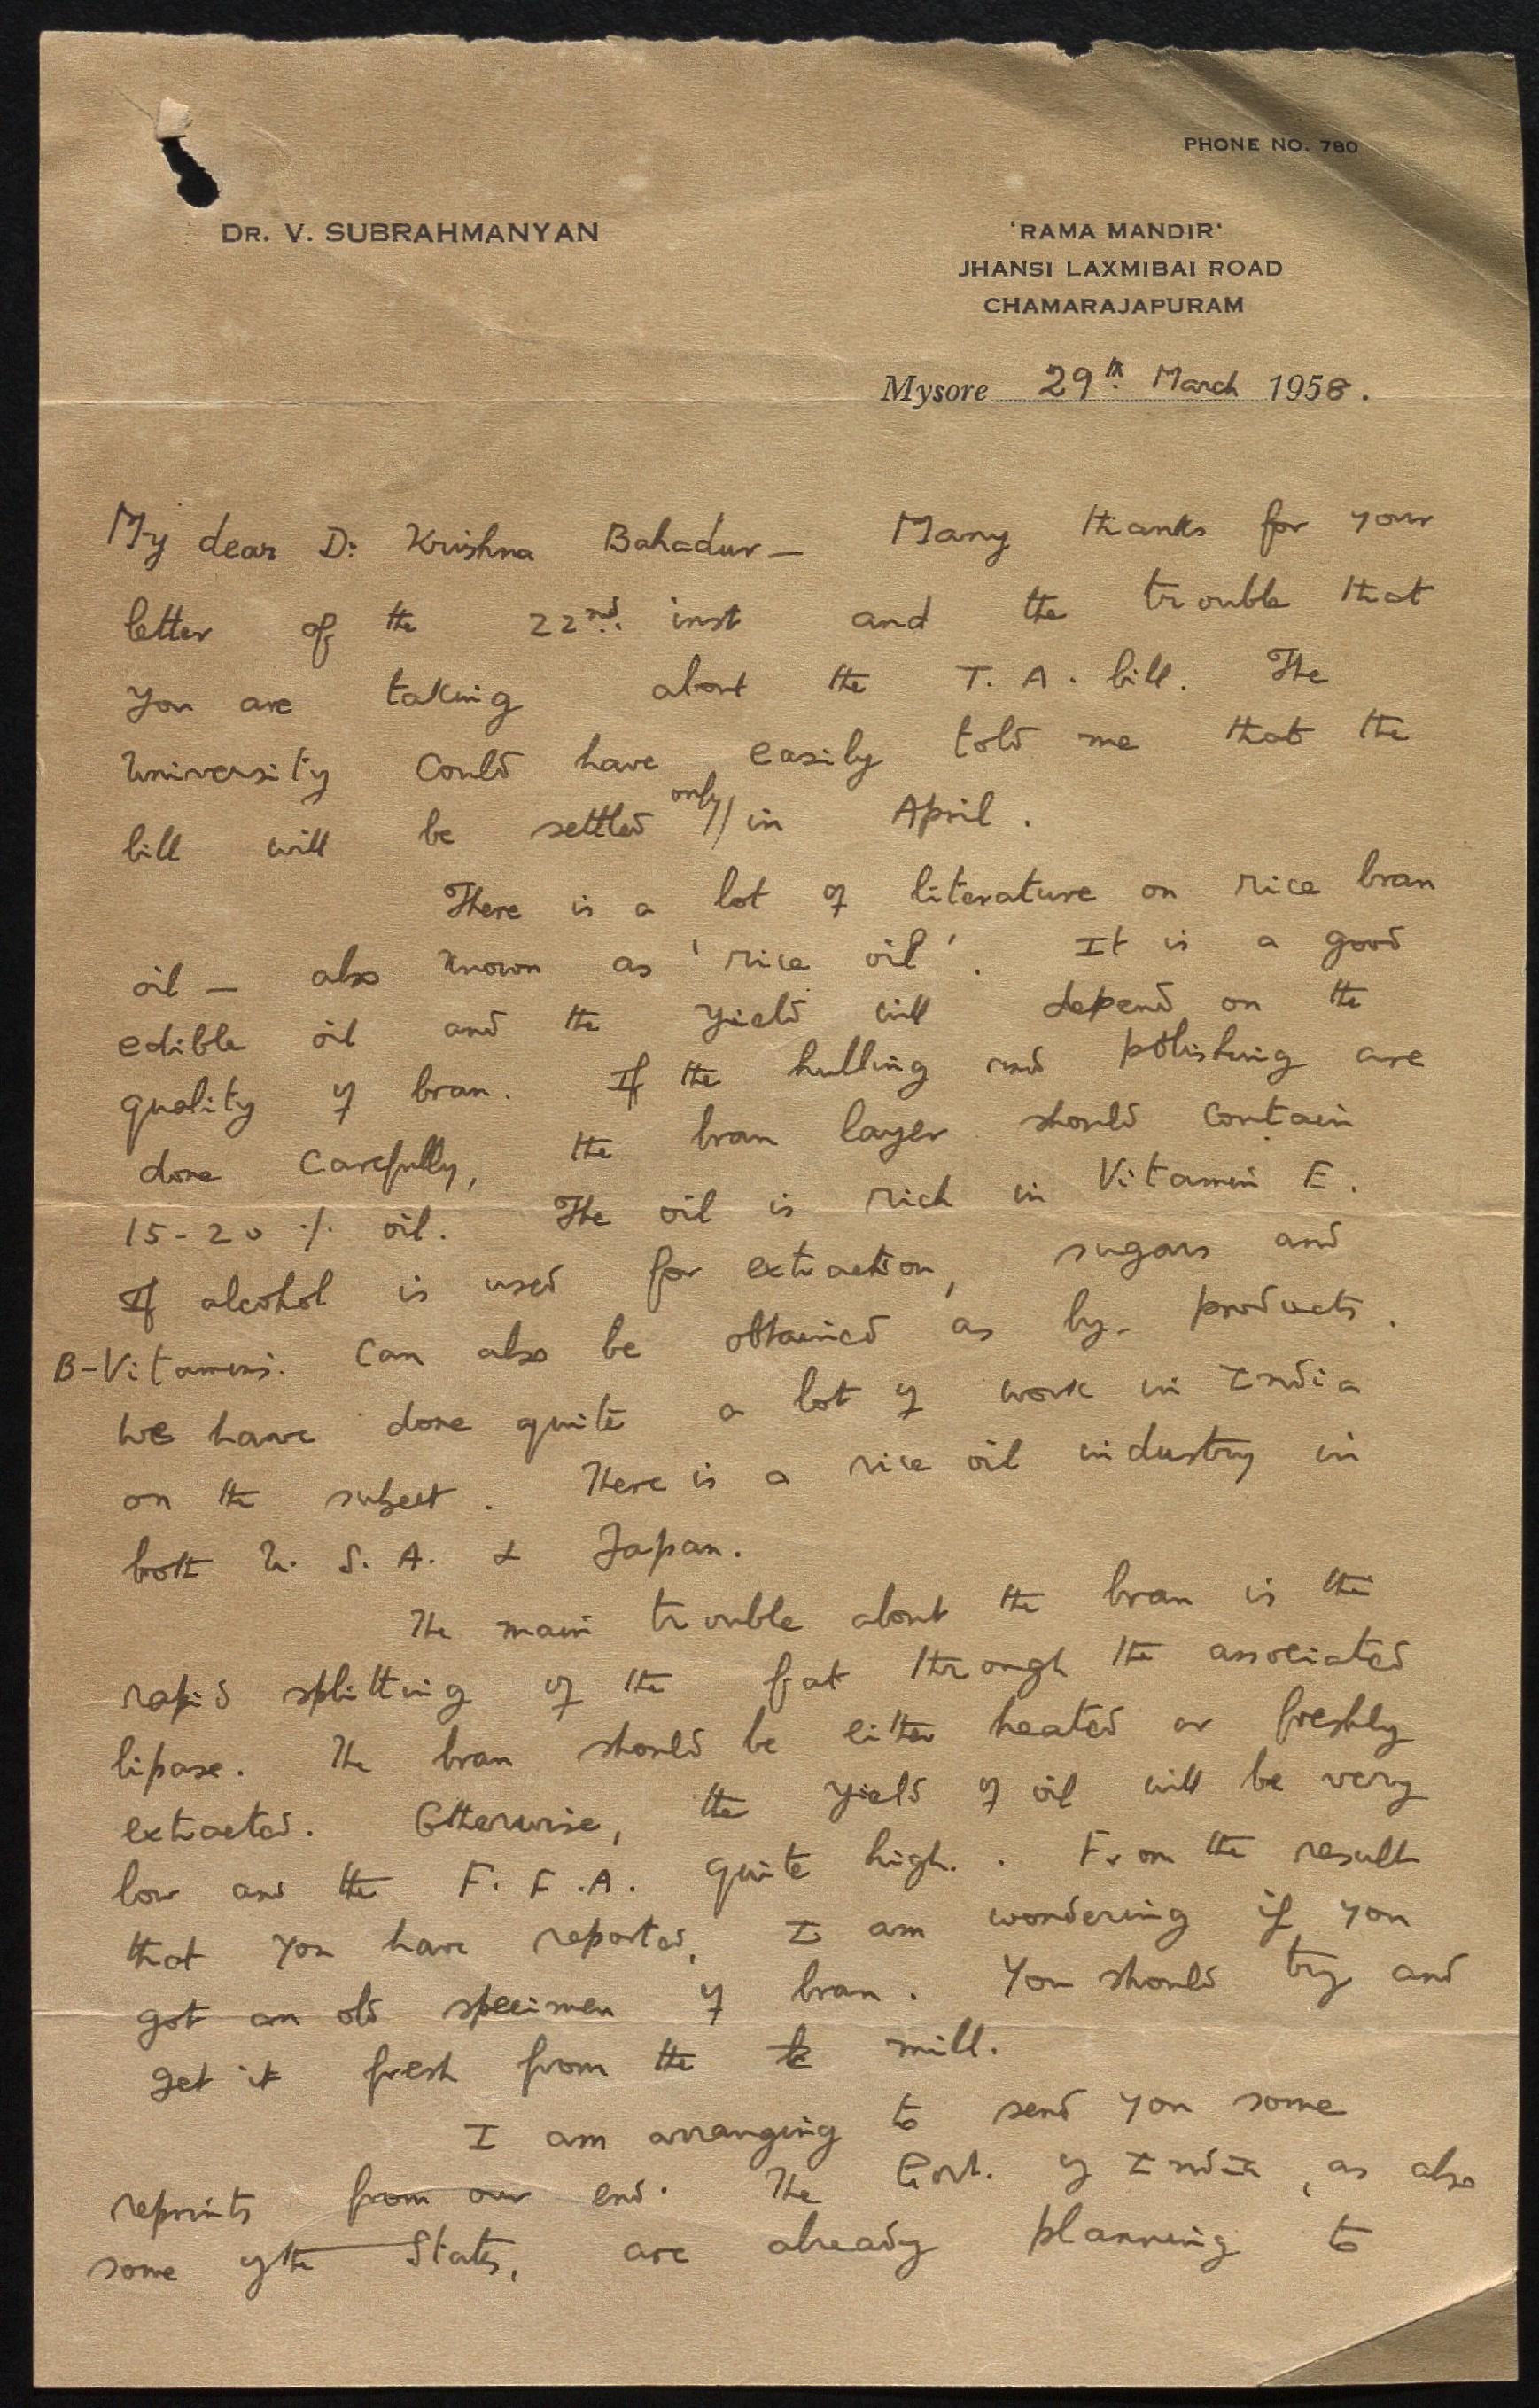 PHONE NO. 780
DR. V. SUBRAHMANYAN
'RAMA MANDIR'
JHANSI LAXMIBAI ROAD
CHAMARAJAPURAM
Mysore 29th March 1958.
My dear Dr Krishna Bahadur — Many thanks for your
letter of the 22nd inst and the trouble that
you are taking about the T. A. bill. The
University could have easily told me that the
bill will be settled only in April.
There is a lot of literature on rice bran
oil — also known as 'rice oil'. It is a good
edible oil and the yield will depend on the
quality of bran. If the hulling and polishing are
done carefully, the bran layer should contain
15-20 % oil. The oil is rich in Vitamin E.
If alcohol is used for extraction, sugars and
B-Vitamins. can also be obtained as by-products.
We have done quite a lot of work in India
on the subject. There is a rice oil industry in
both U. S. A. & Japan.
The main trouble about the bran is the
rapid splitting of the fat through the associated
lipase. The bran should be either heated or freshly
extracted. Otherwise, the yield of oil will be very
low and the F. F. A. quite high. From the result
that you have reported, I am wondering if you
got an old specimen of bran. You should try and
get it fresh from the mill.
I am arranging to send you some
reprints from our end. The Govt. of India, as also
some of the States, are already planning to